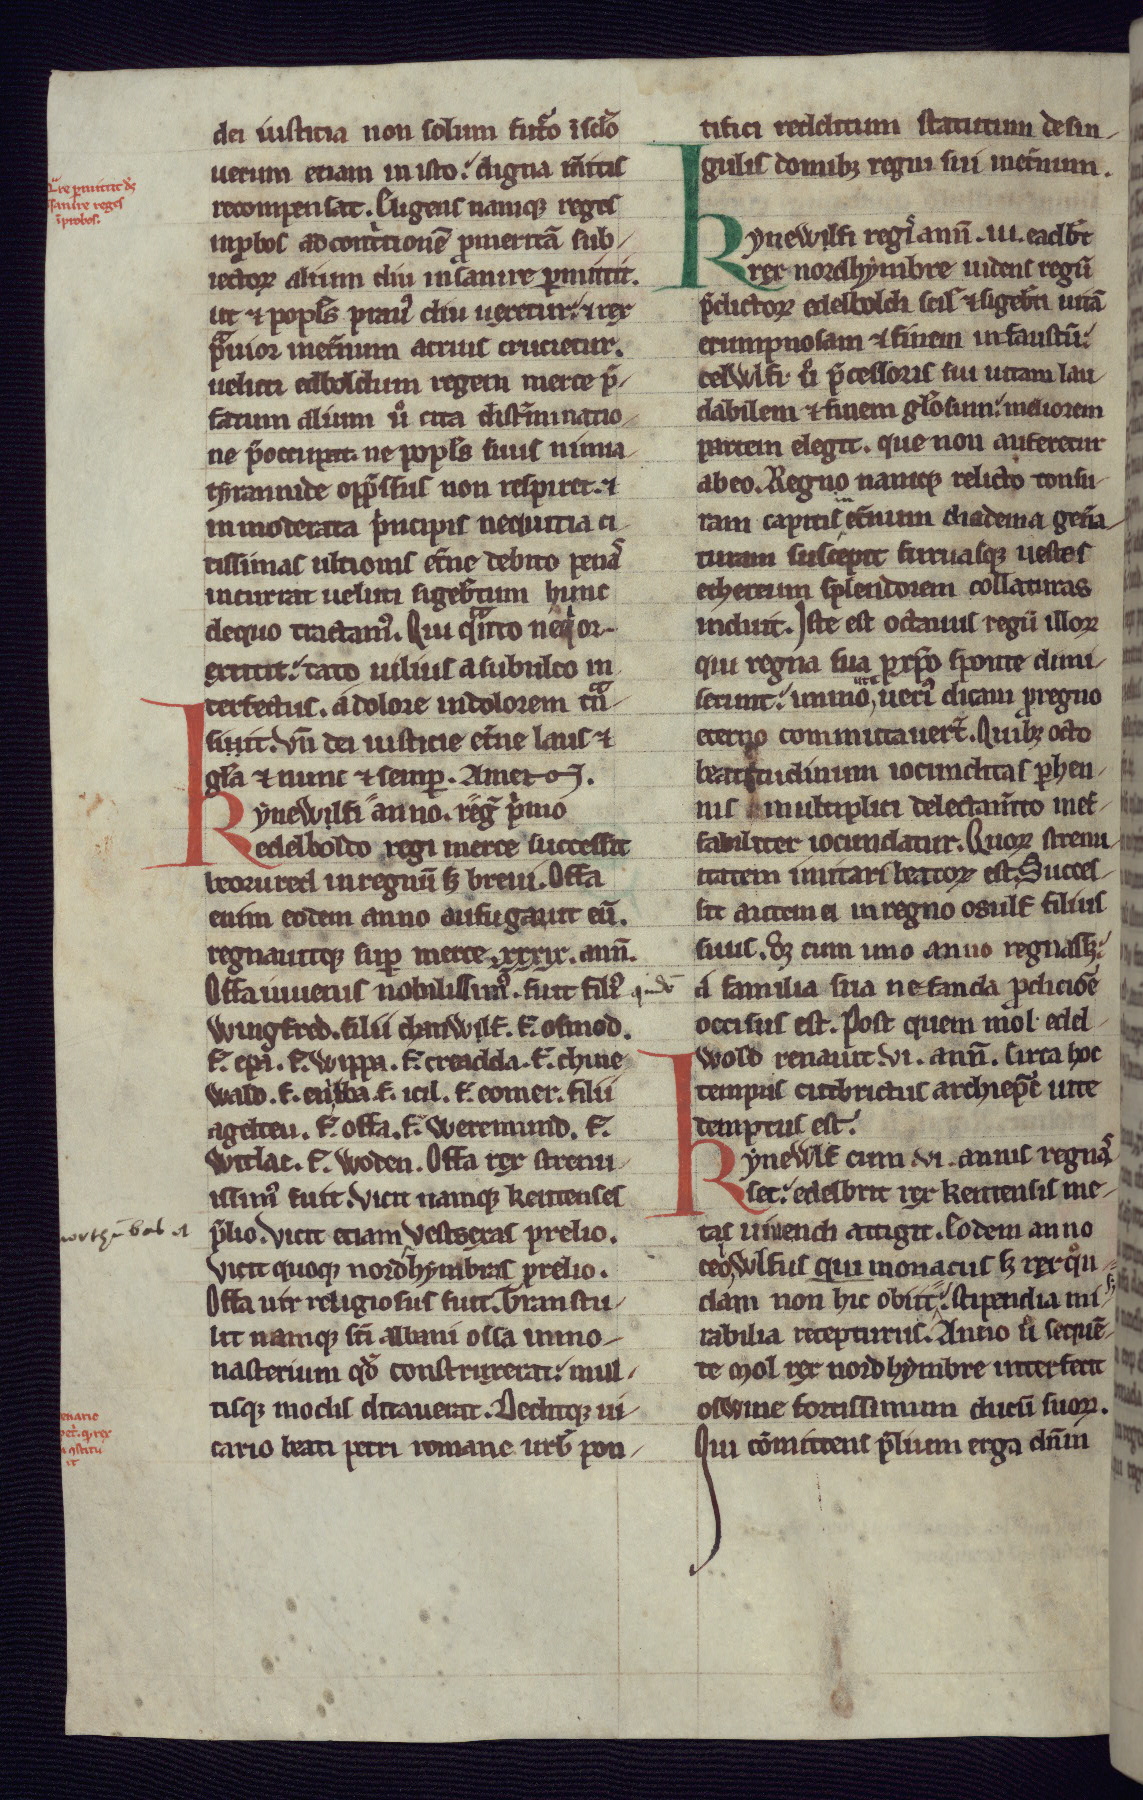 dei iusticia non solum futo͛o i͛sclo͛
uerum etiam in isto. digna m͛itis
recompensat. Eligens namq; reges
inp̱bos ad cont͛itione͛ p̱merita͛ sub-
iectoꝝ alium diu insanire p̱mittit.
ut ⁊ popl͛s praui᷒ diu uexetur. ⁊ rex
p͛uior inet͛num acrius crucietur.
ueluti edboldum regem merce p͛-
fatum alium u͛o cita dist͛minatio-
ne p͛occupat. ne popl͛s suus nimia
tyrannide opp͛ssus non respiret. ⁊
inmoderata p͛ncipis nequitia ci-
tissimas ultionis et͛ne debito penas
incurrat ueluti sigeb͛tum hunc
dequo tractam᷒. Qui q͛nto neq͛or
extitit. tato uilius a subulco in
terfectus. a dolore indolorem t͛n
siuit. Vn͛ dei iusticie et͛ne laus ⁊
gl͛a ⁊ nunc ⁊ semp̱. Amen.
Kynewlfi anno. reg͛ p͛mo
edelboldo regi merce successit
beorured in regnu͛ sꝫ breui. Offa
enim eodem anno aufugauit eu͛.
regnauitq; sup̱ merce .xxxix. ann͛.
Offa iuuenis nobilissim᷒. fuit fili᷒ quid͛
wingfred. filii chanwlf. f. osmod.
f. epa. f. wippa. f. creadda. f. chine
wald. f. cnibba. f. icil. f. eomer. filii
agelteu. f. offa. f. weremund. f.
witlac. f. woden. Offa rex strenu-
issim᷒ fuit. Vicit namq; kentenses
p͛lio. Vicit etiam vestsexas prelio.
Vicit quoq; nordhymbras prelio.
Offa uir religiosus fuit. Transtu-
lit namq; sc͛i albani ossa inmo-
nasterium qd͛ construxerat. mul-
tisq; modis ditauerat. Deditq; ui-
cario beati petri romane urb͛ pon-
tifici redditum statutum de sin-
gulis domibꝫ regni sui inet͛num.
Kynewlfi regis ann͛. iii. eadb͛t
rex nordhymbre uidens regu͛
p͛dictoꝝ edelboldi scil ⁊ sigeb͛ti uita͛
erumpnosam ⁊ finem infaustu͛.
celwlfi u͛o p͛cessoris sui uitam lau-
dabilem ⁊ finem gl͛osum. meliorem
partem elegit. que non auferetur
abeo. Regno namq; relicto tonsu-
ram capitis in et͛num diadema gen͛a-
turam suscepit furuasq; uestes
ethereum splendorem collaturas
induit. Iste est octauus regu͛ illoꝝ
qui regna sua p̱ xp͛o sponte dimi-
serunt. immo ute ueri᷒ dicam p̱ regno
eterno commutauer͛t. Quibꝫ octo
beatitudinum iocunditas p̱hen-
nis multiplici delectam͛to inef-
fabiliter iocundatur. Quoꝝ strenu-
itatem imitari beatoꝝ est. Succes-
sit autem ei in regno osulf filius
suus. qꝫ cum uno anno regnassꝫ.
a familia sua nefanda p̱dicio͛e
occisus est. Post quem mol edel-
wold renauit .vi. ann͛. Circa hoc
tempus cutbrictus archiep͛c uite
demptus est.
Kynewlf cum .vi. annis regnas
set. edelbrit rex kentensis me-
tas uiuendi attigit. Eodem anno
ceolwlfus qui monacus sꝫ rex q͛n-
dam non hic obiit. sꝫ stipendia mi-
rabilia recepturus. Anno u͛ seque͛-
te mol rex nordhymbre interfecit
oswine fortissimum ducu͛ suoꝝ.
Qui co͛mittens p͛lium erga dn͛m
q͛re p̱mittit d͛s
sanire reges
i͛probos.